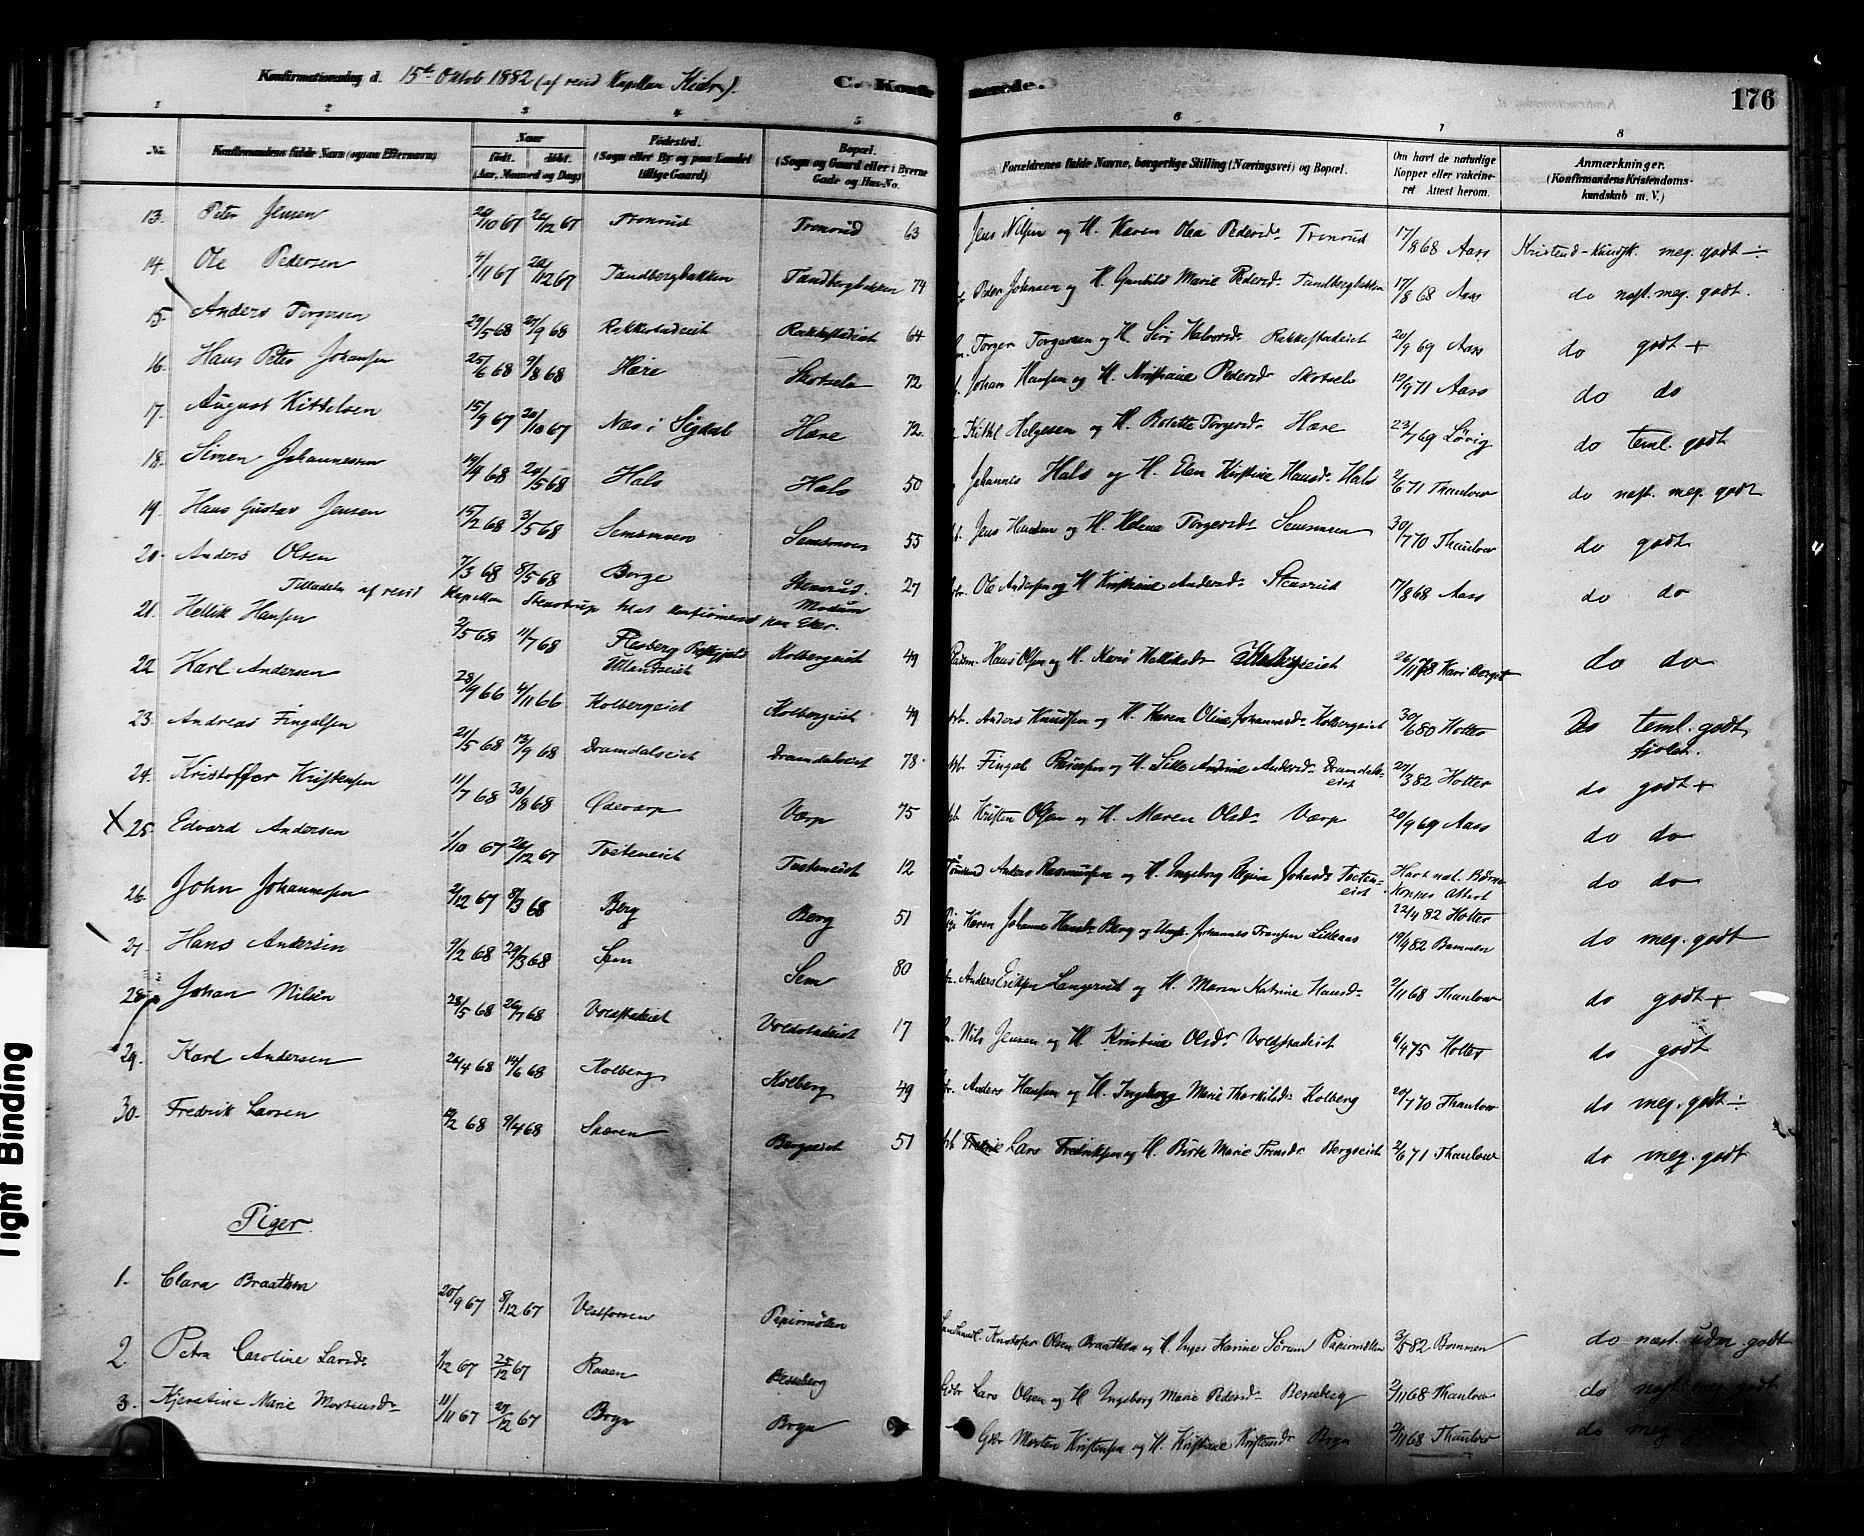 Konfirmationsdag d. 15de Oktob 1882 (af resid Kapellan
C. Konfirmerede.
176
1 2 3 4 5 6 7 8
No. Konfirmandens fulde Navn (ogsaa Efternavn) Naar født. døbt. (Aar, Maaned og Dag) Fødested. (Sogn eller By og paa Landet tillige Gaard) Bopæl. (Sogn og Gaard eller i Byerne Gade og Hus-No. Forældrenes fulde Navne, borgerlige Stilling (Næringsvei) og Bopæl. Om havt de naturlige Kopper eller vakcineret Attest herom. Anmærkninger. (Konfirmandens Kristendomskundskab m. V.)
13. Peter Jensen 26/10 67 26/12 67 Tronrud Tronrud 63 Jens Nilsen og H. Karen Olea Pedersd. Tronrud 17/8 68 Aass Kristend-kundsk. meg. godt ÷
14. Ole Pedersen 4/9 67 26/12 67 Tandbergbakken Tandbergbakken 74 Peder Johnsen og H. Gunhild Marie Pedersd. Tandbergbakken 17/8 68 Aass do næst. meg. godt.
15. Anders Torgersen 29/5 68 27/9 68 Rakkestadeiet Rakkestadeiet 64 Torger Torgersen og H. Siri Halvorsd. Rakkestadeiet 20/9 69 Aass do godt +
16. Hans Peter Johansen 25/6 68 9/8 68 Hære Skotselv 72 Johan Hansen og H. Kristiane Pedersd. Skotselv 12/9 71 Aass do do
17. August Kittelsen 15/9 67 20/10 67 Næs i Sigdal Hære 72 Kittil Helgesen og H. Torgersd. Hære 23/7 69 Løvig do teml. godt
18. Simen Johannessen 14/4 68 24/5 68 Hals Hals 50 Johannes Hals og H. Elen Kirstine Hansd. Hals 2/6 71 Thaulow do næst. meg. godt
19. Hans Gustav Jensen 15/2 68 3/5 68 Semsmoen Semsmoen 55 Jens Hansen og H. Helene Torgersd. Semsmoen 30/7 70 Thaulow do godt
20. Anders Olsen 7/3 68 8/5 68 Berge Stensrud. Modum 27 Ole Andersen og H Kristiane Andersd. Stensrud 17/8 68 Aass do do
Tilladelse af resid Kapellan Steenstrup blev konfirmeret paa Eker.
21. Hellik Hansen 2/5 68 11/7 68 Flesberg Præstgjeld Kolbergeiet 49 Hans Olsen og H. Kari Helliksd. 26/11 78 Kari Berget do do
22 Karl Andersen 28/9 66 4/11 66 Kolbergeiet Kolbergeiet 49 Anders Knudsen og H. Karen Oline Johannesd. Kolbergeiet 30/6 80 Hotter Do teml. godt
23. Andreas Fingalsen 21/5 68 13/9 68 Dramdalseiet Dramdalseiet 78 Fingal og H. Andrine Andersd. Dramdalseiet 27/3 82 Hotter do godt +
24. Kristoffer Kristensen 11/7 68 30/8 68 Ødeværp Værp 75 Kristen Olsen og H. Maren Olsd. Værp 20/9 69 Aass do do
X 25. Edvard Andersen 1/10 67 26/12 67 Toeteneiet Toeteneiet 12 Anders Rasmussen og H. Ingeborg Regine Johansd. Toeteneiet Havt nat. Børnekopper attest 22/4 82 Hotter do do
26. John Johannesen 2/12 67 8/3 68 Berg Berg 51 Pige Karen Johanne Hansd. Berg og Ungk. Johannes Fransen Lilleaas 19/4 82 Bommen do meg. godt
27. Hans Andersen 9/2 68 29/3 68 Sem Sem 80 Anders Eriksen Langerud og H. Maren Katrine Hansd. 2/11 68 Thaulow do godt +
28. Johan Nilsen 28/5 68 26/7 68 Voldstadeiet Voldstadeiet 17 Nils Jensen og H. Kristine Olsd. Voldstadeiet 6/4 75 Hotter do godt
29. Karl Andersen 26/4 68 14/6 68 Kolberg Kolberg 49 Anders Hansen og H. Ingeborg Marie Thorkilsd. Kolberg 20/7 70 Thaulow do meg. godt ÷
30. Fredrik Larsen 12/2 68 9/4 68 Skæren Bergseiet 51 Lars Fredriksen og H. Birte Marie Bergseiet 2/6 71 Thaulow do meg. godt
Piger.
1. Clara Braathen 20/9 67 8/12 67 Vestfossen Papirmøllen Kristofer Olsen Braathen og H. Inger Karine Sørum Papirmøllen 3/5 82 Bommen do næst. uden godt
2. Petra Caroline Larsd. 1/12 67 25/12 67 Raaen Besseberg Lars Olsen og H Ingeborg Marie Pedersd. Besseberg 2/11 68 Thaulow do næst. meg. godt
3. Kjerstine Marie Mortensd. 11/11 67 27/12 67 Bogn Bogn Gbr Morten Kristensen og H. Kristiane Kristensd. Bogn 2/11 68 Thaulow do meg
Tight Binding